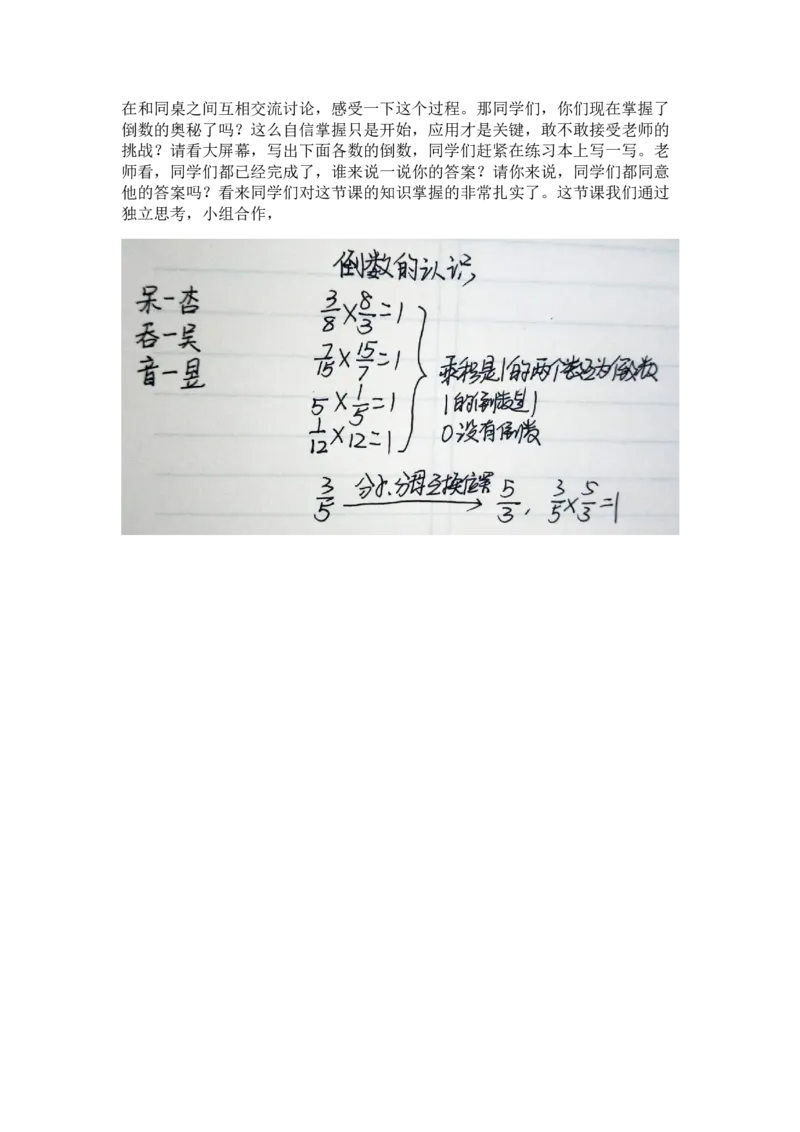 在和同桌之间互相交流讨论，感受一下这个过程。那同学们，你们现在掌握了
倒数的奥秘了吗？这么自信掌握只是开始，应用才是关键，敢不敢接受老师的
挑战？请看大屏幕，写出下面各数的倒数，同学们赶紧在练习本上写一写。老
师看，同学们都已经完成了，谁来说一说你的答案？请你来说，同学们都同意
他的答案吗？看来同学们对这节课的知识掌握的非常扎实了。这节课我们通过
独立思考，小组合作，
倒数的认识
呆—杏
吞—吴
音—昱
3/8×8/3=1
7/15×15/7=1
5×1/5=1
1/12×12=1
乘积是1的两个数互为倒数
1的倒数是1
0没有倒数
3/5 分子、分母互换位置 5/3，3/5×5/3=1